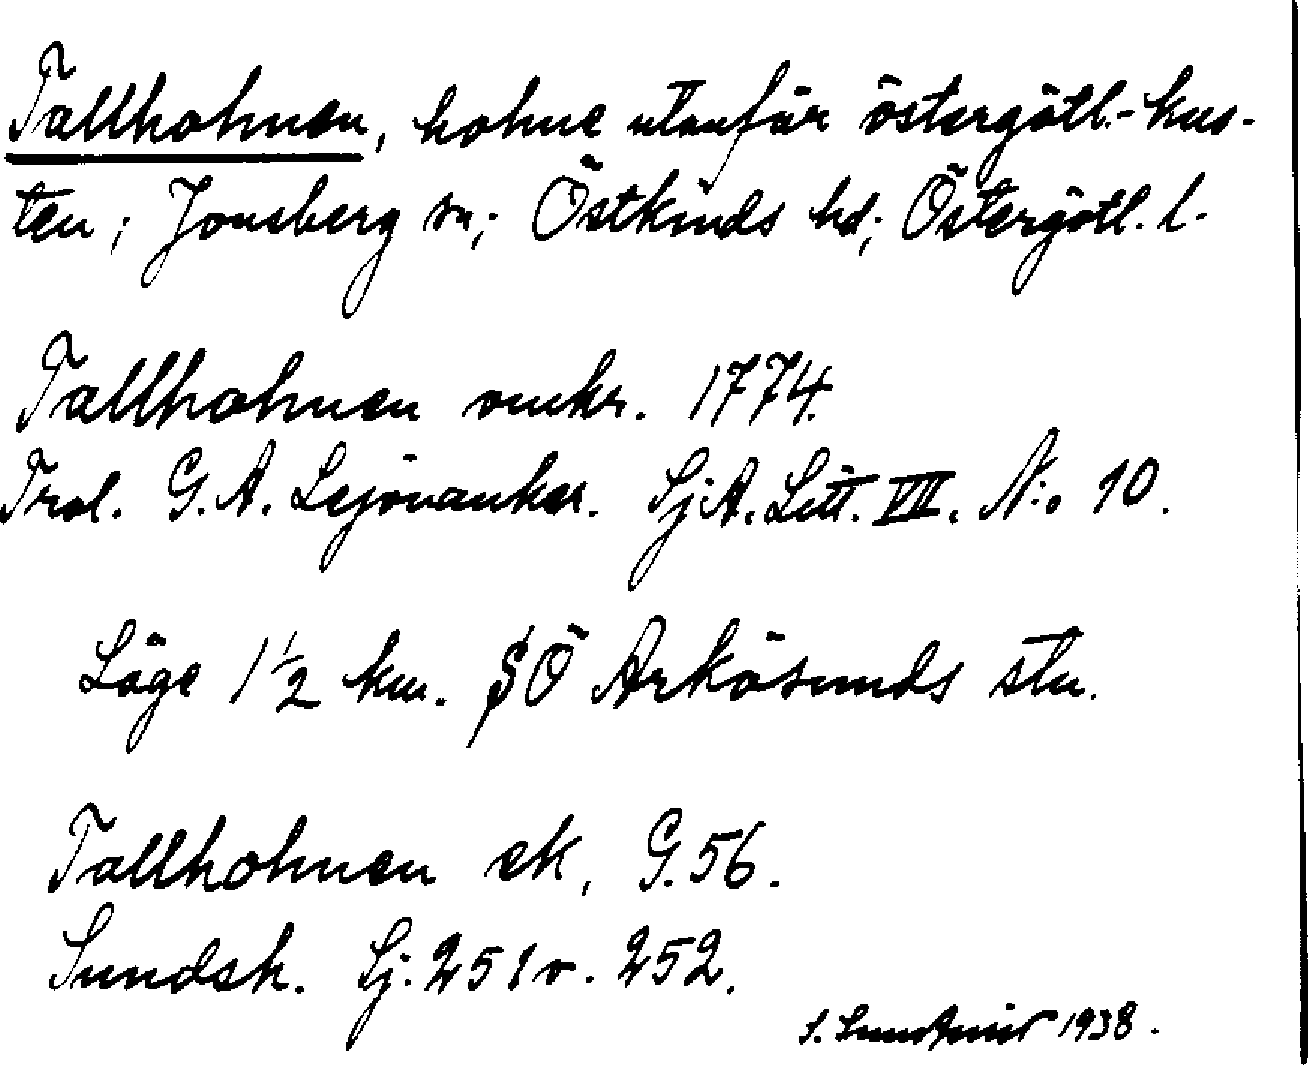 Tallholmen, holme utanför östergötl.-kus-
ten; Jonsberg sn; Östkinds hd; Östergötl. l.
Tallholmen omkr. 1774.
Trol. G. A. Lejonanker. Sj.A. Litt. VII. N:o 10.
Läge 1 1/2 km. SÖ Arkösunds stn.
Tallholmen ek, G. 56.
Sundsk. Sj. 251 v. 252.
S. 1938.